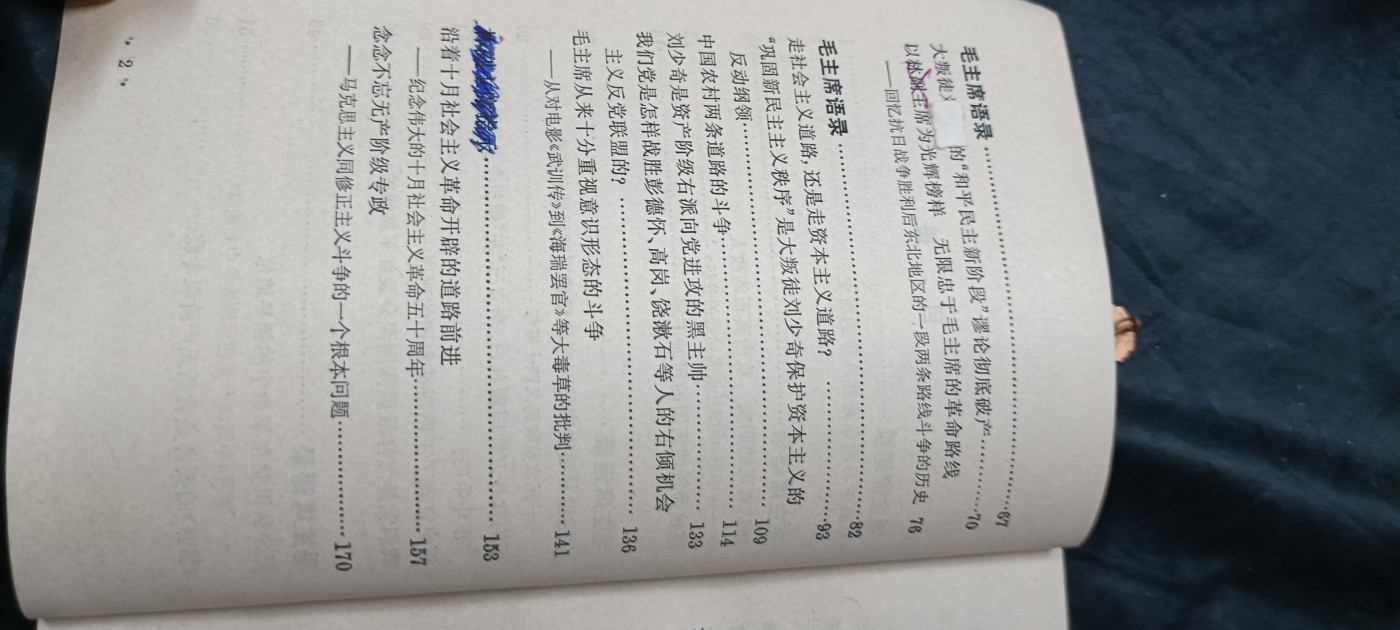 毛主席语录 ……67
大叛徒 的“和平民主新阶段”谬论彻底破产……70
以林副主席为光辉榜样 无限忠于毛主席的革命路线
——回忆抗日战争胜利后东北地区的一段两条路线斗争的历史 76
毛主席语录 ……82
走社会主义道路，还是走资本主义道路？ ……93
“巩固新民主主义秩序”是大叛徒刘少奇保护资本主义的
反动纲领……109
中国农村两条道路的斗争……114
刘少奇是资产阶级右派向党进攻的黑主帅……133
我们党是怎样战胜彭德怀、高岗、饶漱石等人的右倾机会
主义反党联盟的？ ……136
毛主席从来十分重视意识形态的斗争
——从对电影《武训传》到《海瑞罢官》等大毒草的批判……141
……153
沿着十月社会主义革命开辟的道路前进
——纪念伟大的十月社会主义革命五十周年……157
念念不忘无产阶级专政
——马克思主义同修正主义斗争的一个根本问题……170
· 2 ·